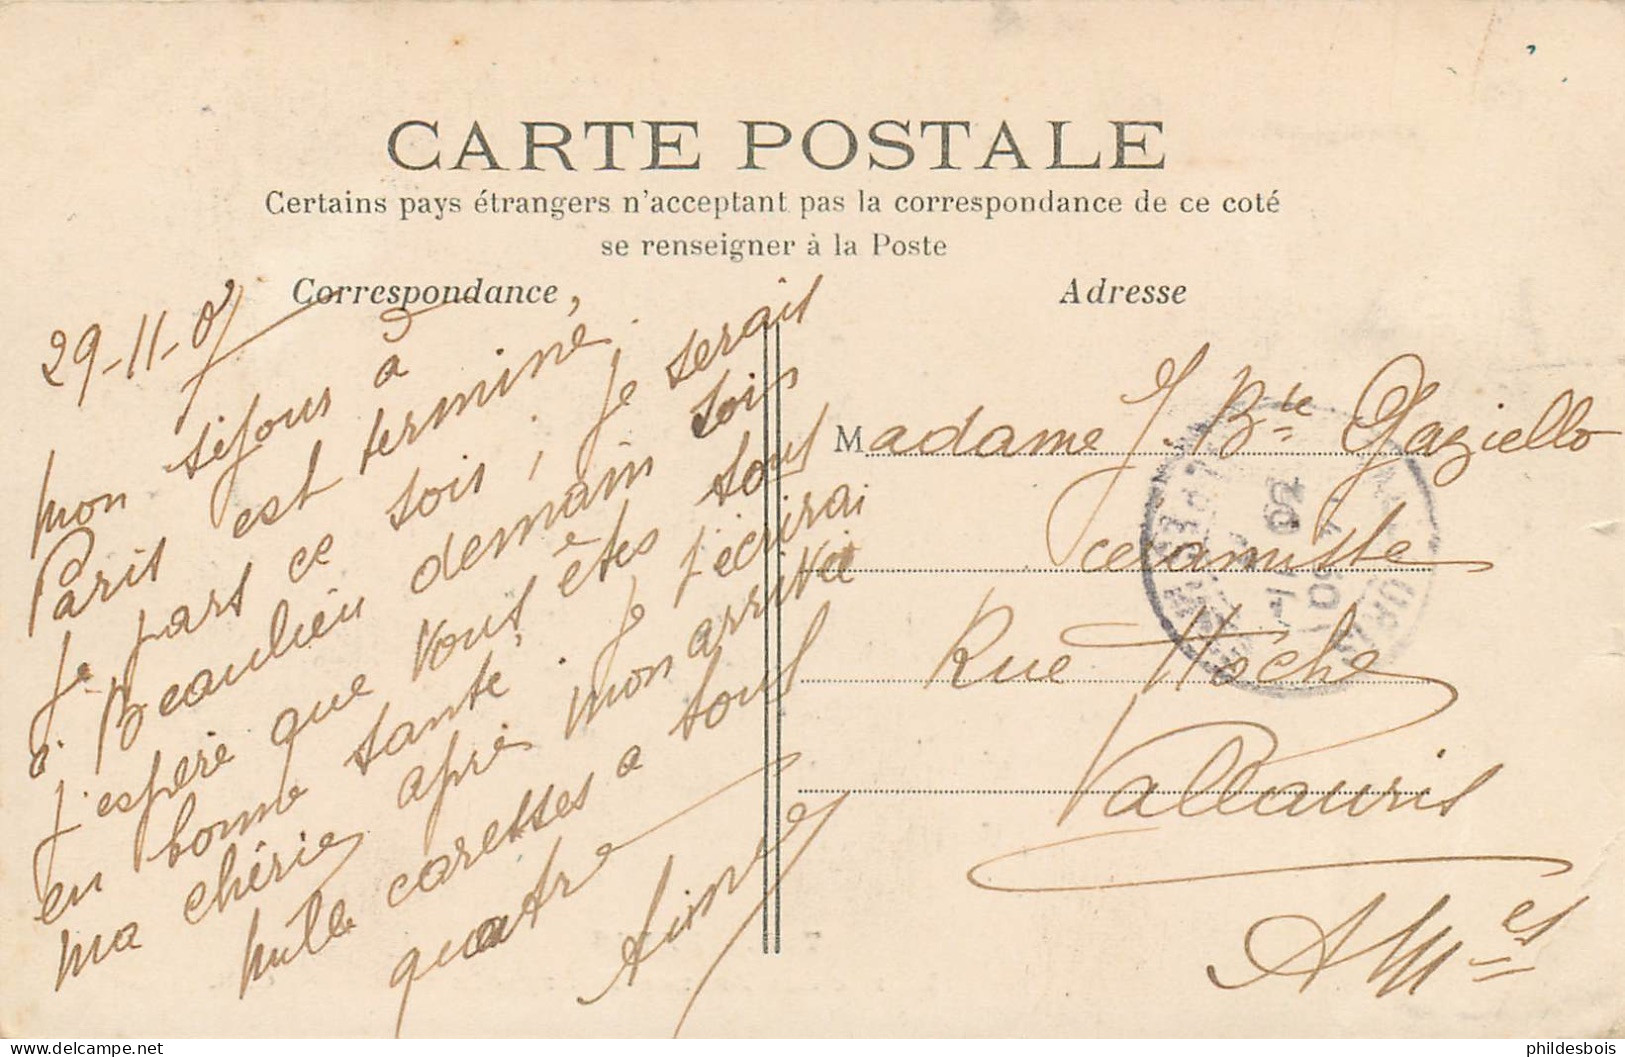 CARTE POSTALE
Certains pays étrangers n'acceptant pas la correspondance de ce coté
se renseigner à la Poste
Correspondance
Adresse
29-11-07
mon séjour à
Paris est terminé.
Je pars ce soir ; je serait
à Beaulieu demain soir
j'espère que vous êtes tous
en bonne santé. Je t'écrirai
ma chérie après mon arrivée
mille caresses à tous
quatre
Aimé
Madame J. Bte Gaziello
ceramiste
Rue Hoche
Vallauris
A Mmes
phildesbois